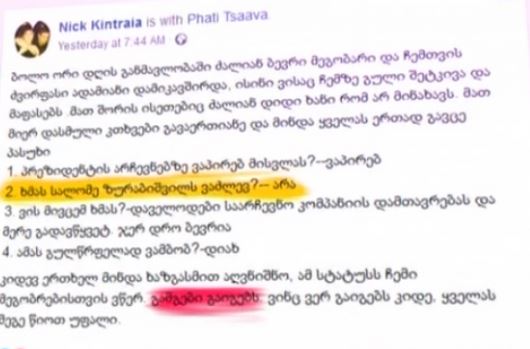 Nick Kintraia is with Phati Tsaava
Yesterday at 7:44 AM
ბოლო ორი დღის განმავლობაში ძალიან ბევრი მეგობარი და ჩემთვის
ძვირფასი ადამიანი დამიკავშირდა, ისინი ვისაც ჩემზე გული შეტკივა და
მაფასებს .მათ შორის ისეთებიც ძალიან დიდი ხანი რომ არ მინახავს. მათ
მიერ დასმული კთხვები გავაერთიანე და მინდა ყველას ერთად გავცე
პასუხი
1. პრეზიდენტის არჩევნებზე ვაპირებ მისვლას?--ვაპირებ
2. ხმას სალომე ზურაბიშვილს ვაძლევ?-- არა
3. ვის მივცემ ხმას?-დაველოდები საარჩევნო კომპანიის დამთავრებას და
მერე გადავწყვეტ. ჯერ დრო ბევრია
4. ამას გულწრფელად ვამბობ?-დიახ
კიდევ ერთხელ მინდა ხაზგასმით აღვნიშნო, ამ სტატუსს ჩემი
მეგობრებისთვის ვწერ. გამგები გაიგებს, ვინც ვერ გაიგებს კიდე, ყველას
მეგე წიოთ უფალი.